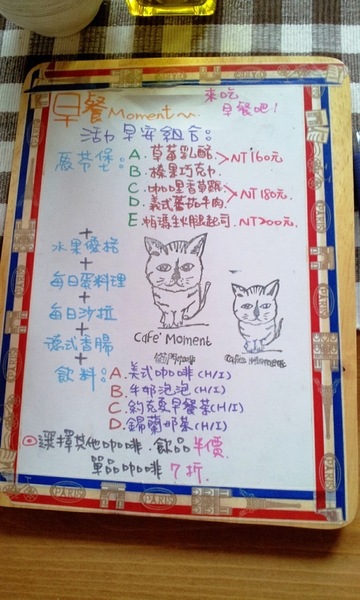 早餐Moment~
來吃
早餐吧!
活力早安組合:
A.草莓乳酪
B.榛果巧克力 >NT160元
C.咖哩香草雞
D.義式蕃茄牛肉 >NT180元.
E.帕瑪生火腿起司.NT200元.
+
水果優格
+
每日蛋料理
+
每日沙拉
+
德式香腸
+
飲料:
A.美式咖啡(H/I)
B.牛奶泡泡(H/I)
C.約克夏早餐茶(H/I)
D.錫蘭奶茶(H/I)
Cafe' Moment
Cafe Moment
⊙選擇其他咖啡.飲品半價.
單品咖啡7折.
PARIS